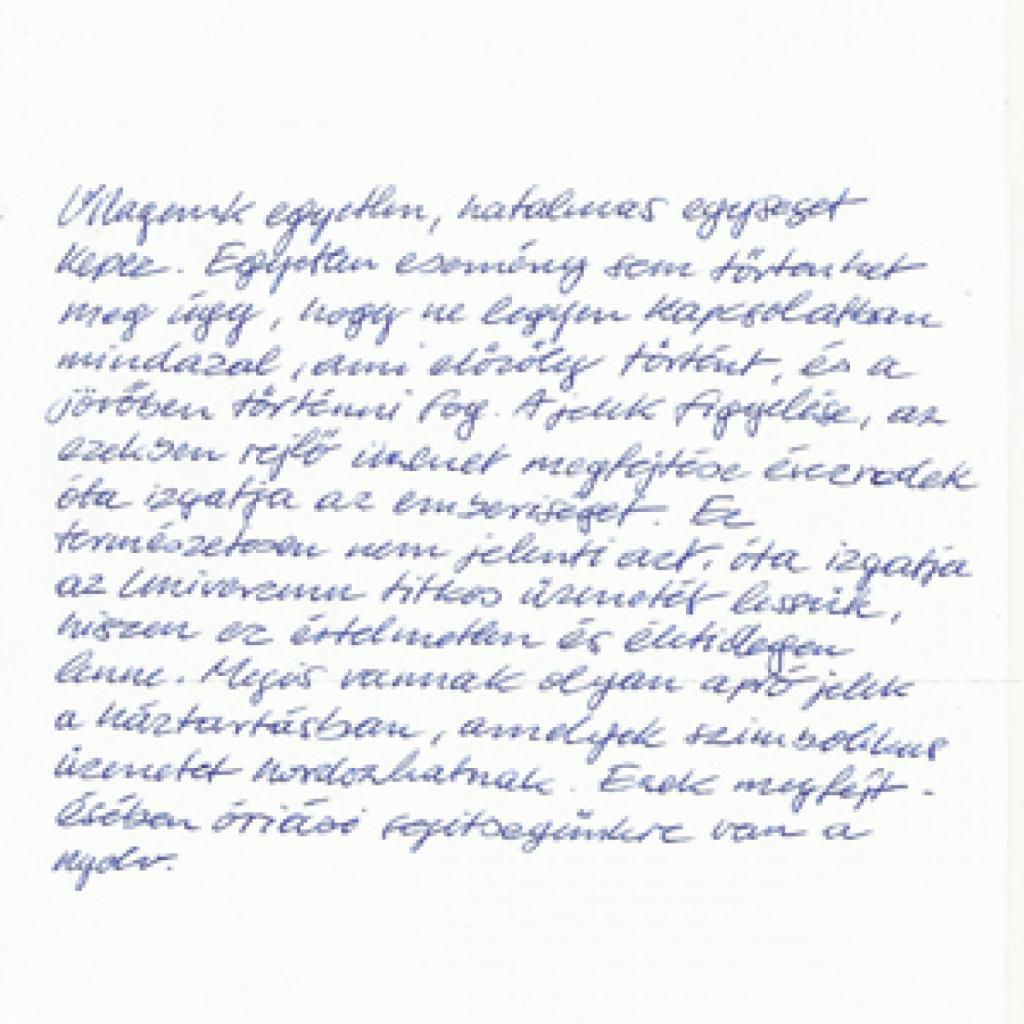 Világunk egyetlen, hatalmas egységet
képez. Egyetlen esemény sem történhet
meg úgy, hogy ne legyen kapcsolatban
mindazal, ami előzőleg történt, és a
jövőben történni fog. A jelek figyelése, az
ezekben rejlő üzenet megfejtése évezredek
óta izgatja az emberiséget. Ez
természetesen nem jelenti azt, óta izgatja
az Univerzum titkos üzenetét lessük,
hiszen ez értelmetlen és életidegen
lenne. Mégis vannak olyan apró jelek
a háztartásban, amelyek szimbolikus
üzenetet hordozhatnak. Ezek megfejt-
ésében óriási segítségünkre van a
nyelv.